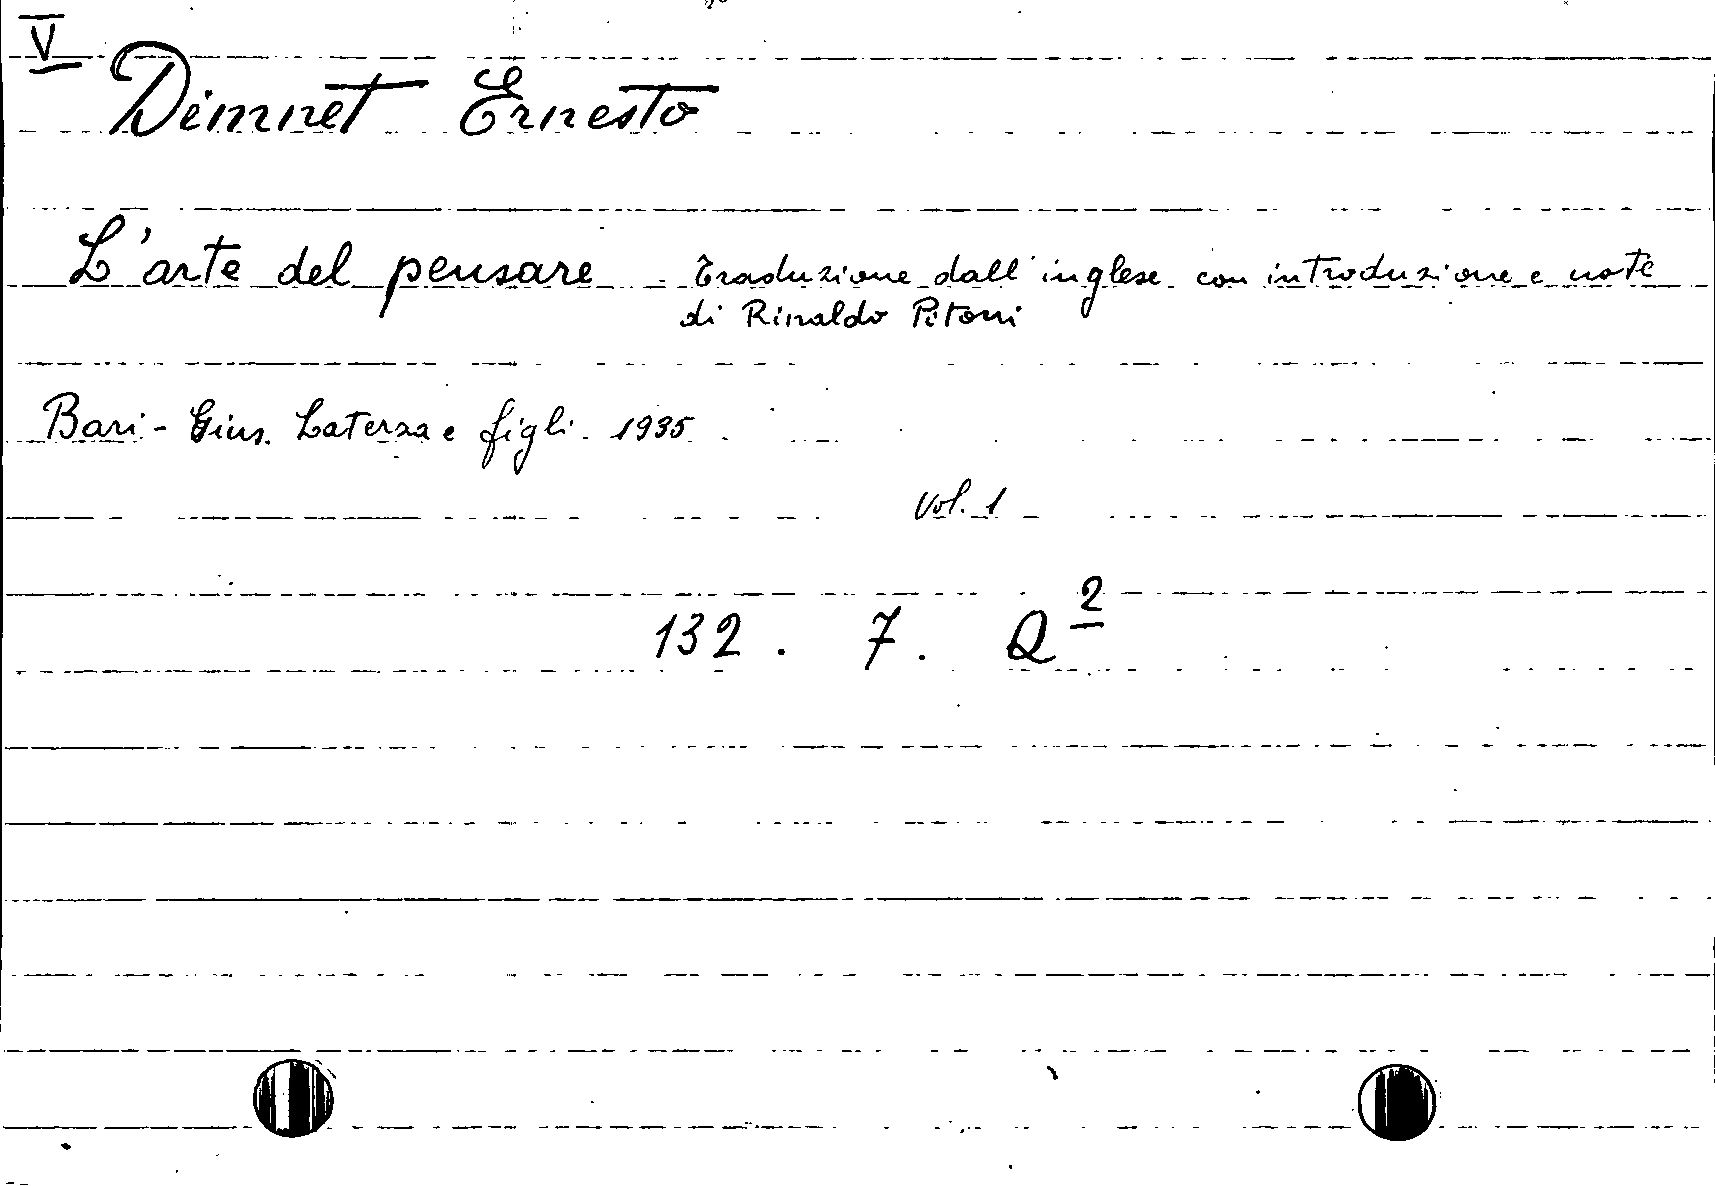 V
Dimnet Ernesto
L'arte del pensare. Traduzione dall'inglese con introduzione e note
di Rinaldo Pitoni
Bari - Gius. Laterza e figli. 1935
Vol. 1
132. 7. Q 2